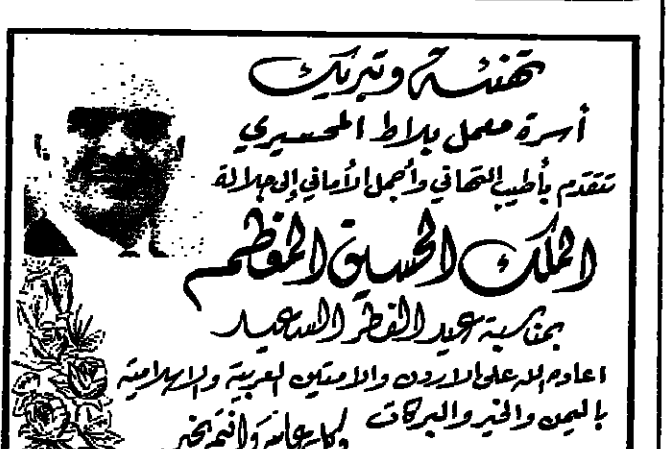 تهنئة وتبريك
أسرة معمل بلاط المحسيري
تتقدم بأطيب التهاني وأجمل الأماني إلى جلالة
الملك الحسين المعظم
بمناسبة عيد الفطر السعيد
اعاده الله على الاردن والامتين العربية والاسلامية
باليمن والخير والبركات
وكل عام وأنتم بخير